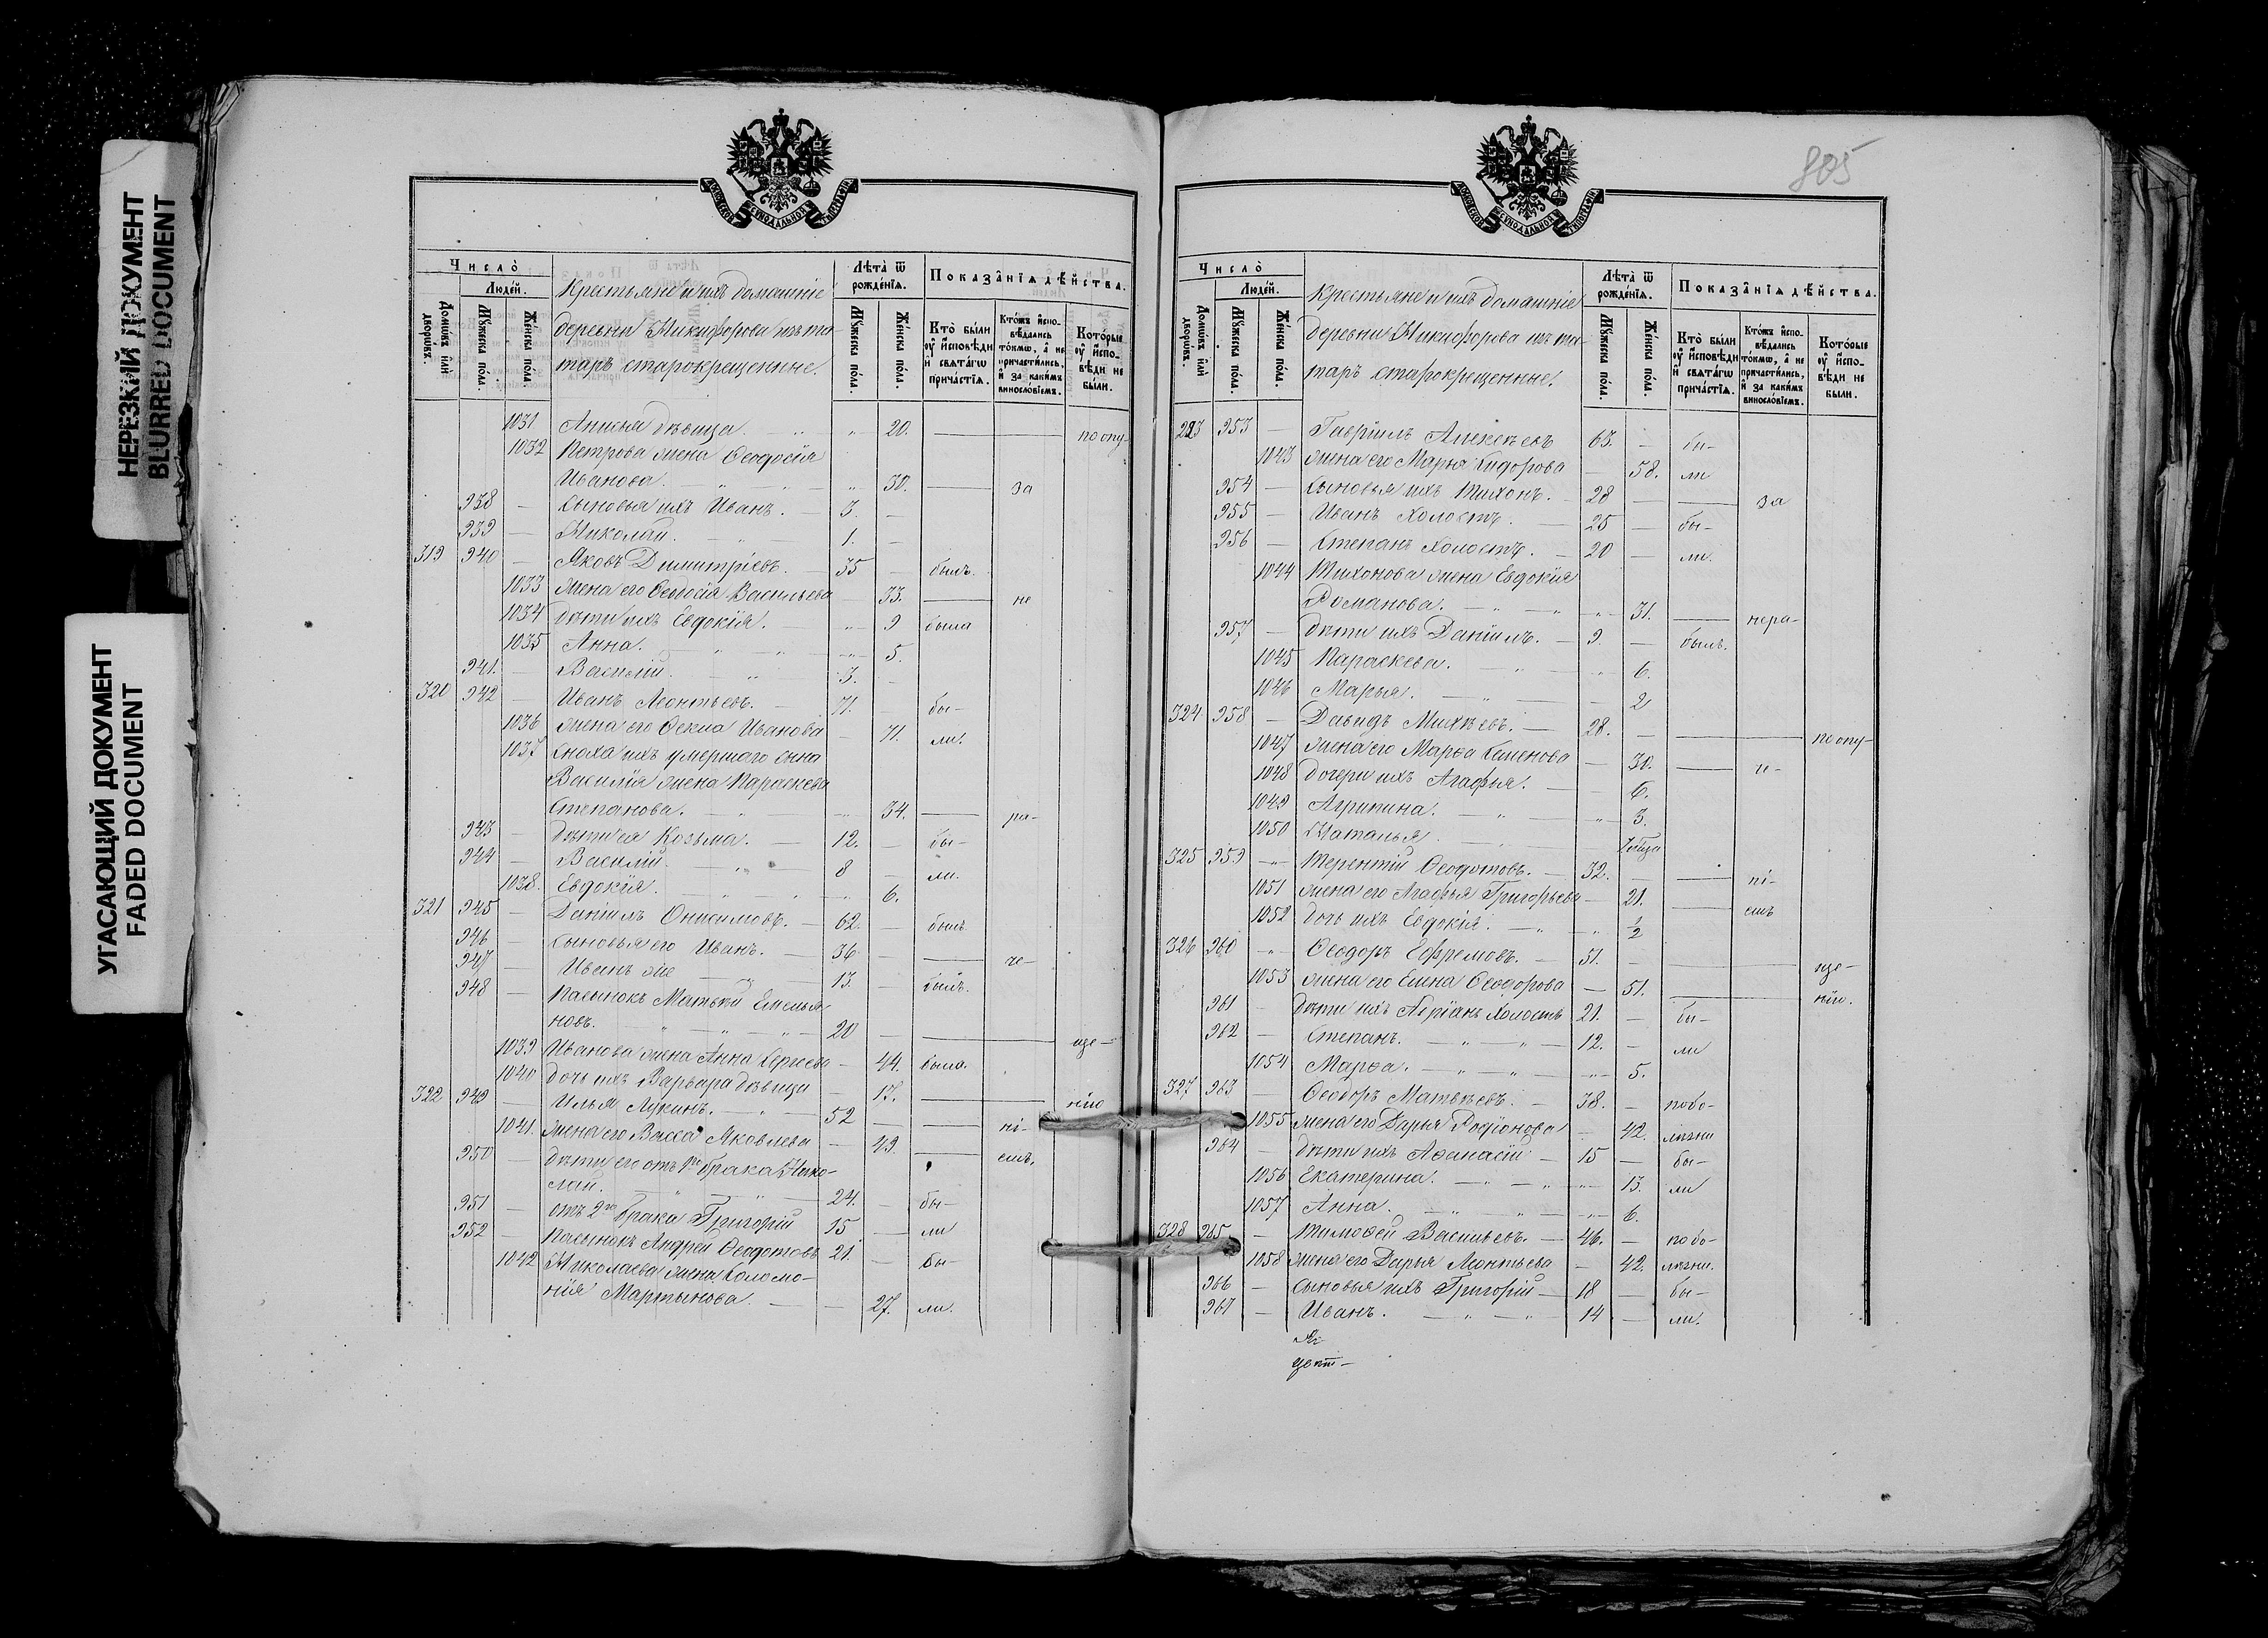 НЕРЕЗКИЙ ДОКУМЕНТ
BLURRED DOCUMENT
УГАСАЮЩИЙ ДОКУМЕНТ
FADED DOCUMENT
МОСКОВСКОЙ СѴНОДАЛЬНОЙ ТѴПОГРАФІИ
Число̀
Людей.
Домѡвъ илѝ дворѡвъ.
Мꙋжеска пола.
Женска пола.
Крестьяне и ихъ домашніе
деревни Никифорова изъ та
таръ старокрещенные.
Лѣта̀ ѿ рожденїѧ.
Мꙋжеска пола.
Женска пола.
Показанїѧ дѣйства.
Кто̀ были ᲂу҆ и҆сповѣди и҆ свѧтагѡ причастїѧ.
Ктожъ и҆сповѣдались токмѡ, а҆ не причастились, и҆ за какимъ винословїемъ.
Которые ᲂу҆ и҆сповѣди не были.
1031 Анисья дѣвица. — „ „ 20. — по опу-
1032 Петрова жена Ѳеодосія
Иванова. — „ — „ 30. — за
938 — Сыновья ихъ Иванъ. — 3. —
939 — Николай. — „ — 1. —
319 940 — Яковъ Димитріевъ. — 35 — былъ.
1033 жена его Ѳеодосія Васильева — 33. — не
1034 дѣти ихъ Евдокія. „ — 9 была
1035 Анна. — „ — „ — 5.
941. — Василій. — „ — 3. —
320 942 — Иванъ Леонтьевъ. — 71. — бы-
1036 жена его Ѳекла Иванова — 71. ли.
1037 Сноха ихъ умершаго сына
Василія жена Параскева
Степанова. — „ — „ 34. — ра-
943 — дѣти ея Козьма. — 12. — бы-
944 — Василій. — „ — 8 — ли.
1038. Евдокія. — „ — „ — 6.
321 945 — Даніилъ Онисимовъ. — 62. — былъ
946 — Сыновья его Иванъ. — 36 — че-
947 — Иванъ же — „ — 13. — былъ.
948 — Пасынокъ Матвѣй Емелья
новъ. „ — „ — „ 20 — — уще-
1039 Иванова жена Анна Сергѣева — 44. была.
1040 дочь ихъ Варвара дѣвица — 17. — нію
322 949 — Илья Лукинъ. — „ — 52 — — ні-
1041. жена его Васса Яковлева — 49. — емъ.
950 — дѣти его отъ 1го брака Нико-
лай. — „ — „ — 24. — бы-
951 — отъ 2го брака Григорій 15 — ли
952 — Пасынокъ Андрей Ѳеодотовъ 21. — бы-
1042 Николаева жена Соломо-
нія Мартынова. — — 27. ли.
805
МОСКОВСКОЙ СѴНОДАЛЬНОЙ ТѴПОГРАФІИ
Число̀
Людей.
Домѡвъ илѝ дворѡвъ.
Мꙋжеска пола.
Женска пола.
Крестьяне и ихъ домашніе
деревни Никифорова изъ та-
таръ старокрещенные.
Лѣта̀ ѿ рожденїѧ.
Мꙋжеска пола.
Женска пола.
Показанїѧ дѣйства.
Кто̀ были ᲂу҆ и҆сповѣди и҆ свѧтагѡ причастїѧ.
Ктожъ и҆сповѣдались токмѡ, а҆ не причастились, и҆ за какимъ винословїемъ.
Которые ᲂу҆ и҆сповѣди не были.
323 953 — Гавріилъ Алексѣевъ 63. — бы-
1043 жена его Марья Сидорова — 58. ли
954 — Сыновья ихъ Тихонъ. — 28 — — за
955 — Иванъ Холостъ. — 25 — бы-
956 — Степанъ Холостъ. — 20 — ли.
1044 Тихонова жена Евдокія
Романова. — „ — „ — 31. — нера-
957 — дѣти ихъ Даніилъ. — 9. — былъ.
1045 Параскева. — „ — „ 6.
1046 Марья. — „ — — 2
324 958 — Давидъ Михѣевъ. — 28. — — по опу-
1047 жена его Марѳа Семенова — 30. — и-
1048 дочери ихъ Агафья. — — 6.
1049 Агрипина. — „ — „ 3.
1050 Наталья. — „ —
325 959 — Терентій Ѳеодотовъ. — 32. — — ні-
1051 жена его Агафья Григорьева — 21. — емъ
1052 дочь ихъ Евдокія. — „ — „ ½
326 960 — Ѳеодоръ Ефремовъ. — 51. — — уще-
1053 жена его Елена Ѳеодорова — 51. — нію.
961 — дѣти ихъ Адріанъ Холостъ 21. — бы-
962 — Степанъ. — „ — „ — 12. — ли
1054 Марѳа. — „ — „ — 5.
327 963 — Ѳеодоръ Матвѣевъ. — 38. — по бо-
1055 жена его Дарья Родіонова — 42. лѣзни
964 — дѣти ихъ Аѳанасій — 15 — бы-
1056 Екатерина. — „ — „ — 13. ли
1057 Анна. — „ — „ — 6.
328 965 — Тимоѳей Васильевъ. — 46. — по бо-
1058 жена его Дарья Леонтьева — 42. лѣзни.
966 — Сыновья ихъ Григорій — 18 — бы-
967 — Иванъ. — „ — „ — 14 — ли.